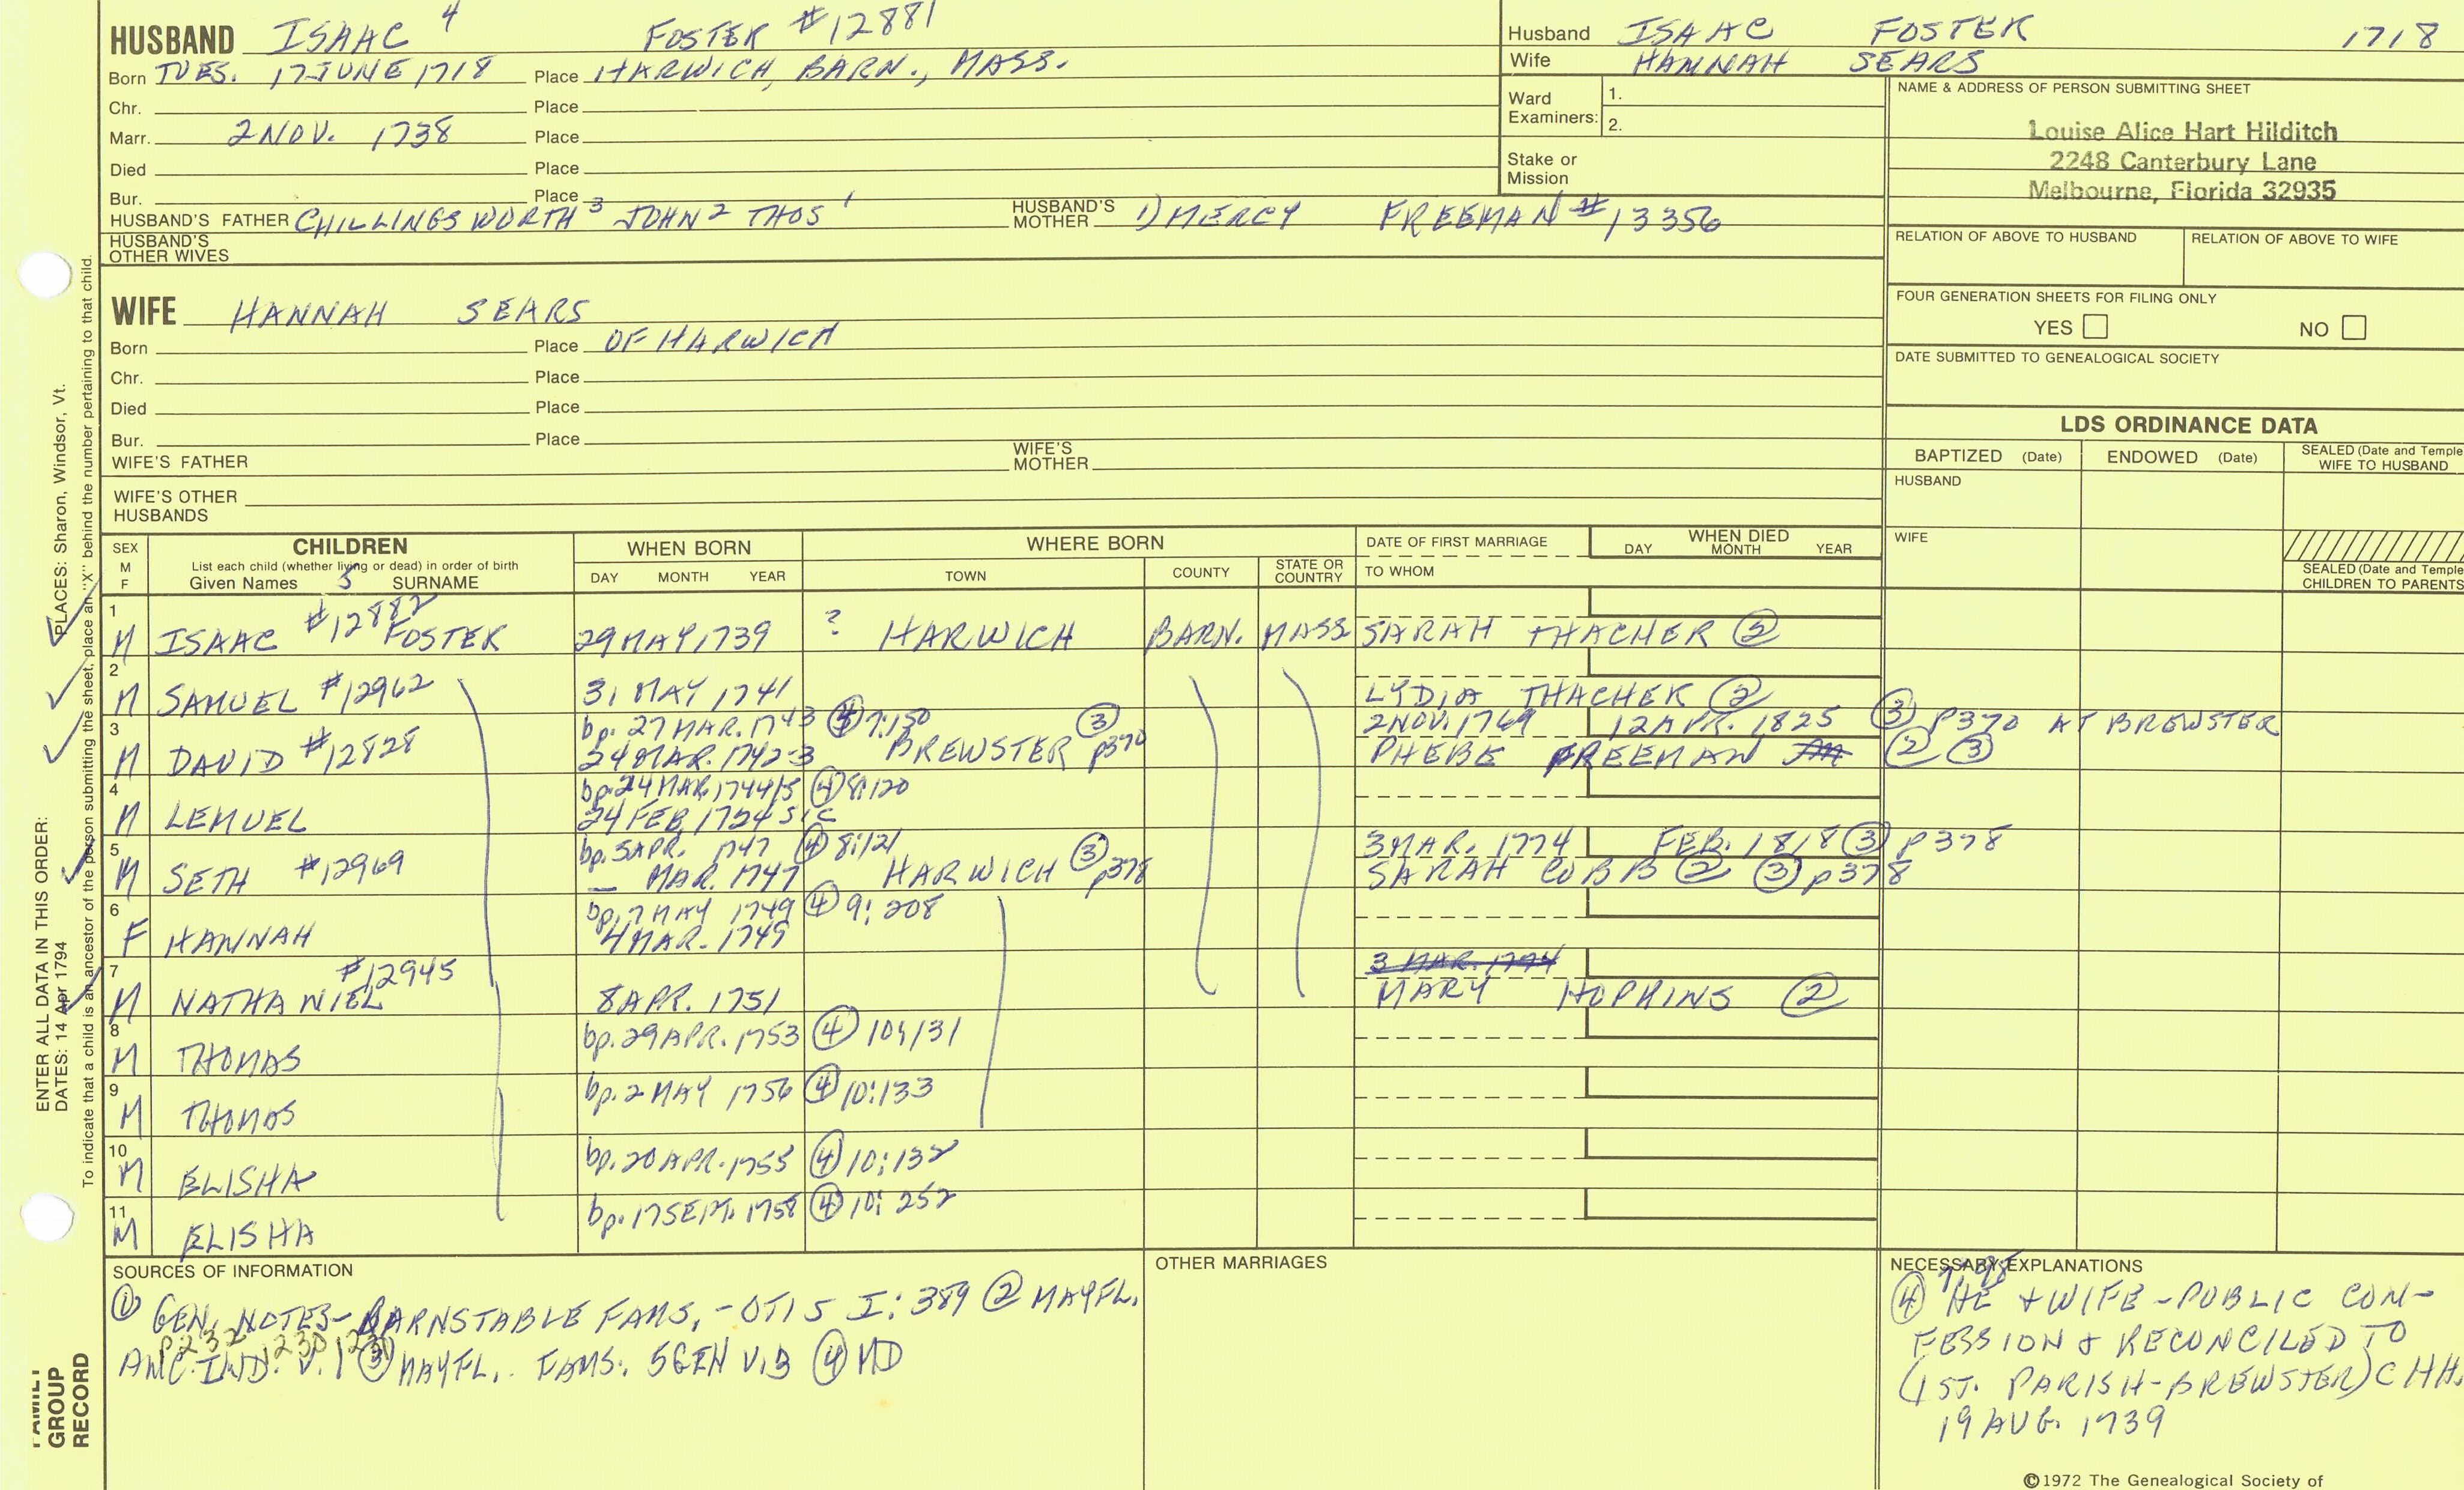 HUSBAND ISAAC 4 FOSTER #12881
Born TUES. 17 JUNE 1718 Place HARWICH, BARN., MASS.
Chr. Place
Marr. 2 NOV. 1738 Place
Died Place
Bur. Place
HUSBAND'S FATHER CHILLINGSWORTH 3 JOHN 2 THOS 1 HUSBAND'S MOTHER 1) MERCY FREEMAN #13356
HUSBAND'S OTHER WIVES
Husband ISAAC FOSTER 1718
Wife HANNAH SEARS
Ward Examiners: 1.
2.
Stake or Mission
NAME & ADDRESS OF PERSON SUBMITTING SHEET
Louise Alice Hart Hilditch
2248 Canterbury Lane
Melbourne, Florida 32935
RELATION OF ABOVE TO HUSBAND RELATION OF ABOVE TO WIFE
FOUR GENERATION SHEETS FOR FILING ONLY
YES NO
DATE SUBMITTED TO GENEALOGICAL SOCIETY
WIFE HANNAH SEARS
Born Place OF HARWICH
Chr. Place
Died Place
Bur. Place
WIFE'S FATHER WIFE'S MOTHER
WIFE'S OTHER HUSBANDS
LDS ORDINANCE DATA
BAPTIZED (Date) ENDOWED (Date) SEALED (Date and Temple WIFE TO HUSBAND
HUSBAND
WIFE
SEALED (Date and Temple CHILDREN TO PARENTS
SEX M F
CHILDREN
List each child (whether living or dead) in order of birth
Given Names 5 SURNAME
WHEN BORN
DAY MONTH YEAR
WHERE BORN
TOWN COUNTY STATE OR COUNTRY
DATE OF FIRST MARRIAGE
TO WHOM
WHEN DIED
DAY MONTH YEAR
1 #12882
M ISAAC FOSTER 29 MAY 1739 ? HARWICH BARN. MASS SARAH THACHER ②
2
M SAMUEL #12962 31 MAY 1741 LYDIA THACHER ②
3 bp. 27 MAR. 1743 ④ 7:150 ③ 2 NOV. 1769 12 APR. 1825 ③ P370 AT BREWSTER
M DAVID #12828 24 MAR. 1742-3 BREWSTER p370 PHEBE FREEMAN ② ③
4 bp. 24 MAR. 1744/5 ④ 8:120
M LEMUEL 24 FEB. 1754 SIC
5 bp. 5 APR. 1747 ④ 8:121 3 MAR. 1774 FEB. 1818 ③ p378
M SETH #12969 — MAR. 1747 HARWICH ③ p378 SARAH COBB ② ③ p378
6 bp. 7 MAY 1749 ④ 9:208
F HANNAH 4 MAR. 1749
7 #12945 3 MAR. 1774
M NATHANIEL 8 APR. 1751 MARY HOPKINS ②
8 bp. 29 APR. 1753 ④ 10:/31
M THOMAS
9 bp. 2 MAY 1756 ④ 10:133
M THOMAS
10 bp. 20 APR. 1755 ④ 10:132
M ELISHA
11 bp. 17 SEPT. 1758 ④ 10:252
M ELISHA
SOURCES OF INFORMATION
① GEN. NOTES-BARNSTABLE FAMS. - OTIS I:389 ② MAYFL.
P232 1230 1231
ANC. IND. V.1 ③ MAYFL. FAMS. 5GEN V.3 ④ MD
OTHER MARRIAGES
NECESSARY EXPLANATIONS
④ HE + WIFE - PUBLIC CON-
FESSION & RECONCILED TO
(1ST. PARISH-BREWSTER) CHH.
19 AUG. 1739
©1972 The Genealogical Society of
PLACES: Sharon, Windsor, Vt.
To indicate that a child is an ancestor of the person submitting the sheet, place an "X" behind the number pertaining to that child.
ENTER ALL DATA IN THIS ORDER:
DATES: 14 Apr 1794
FAMILY GROUP RECORD